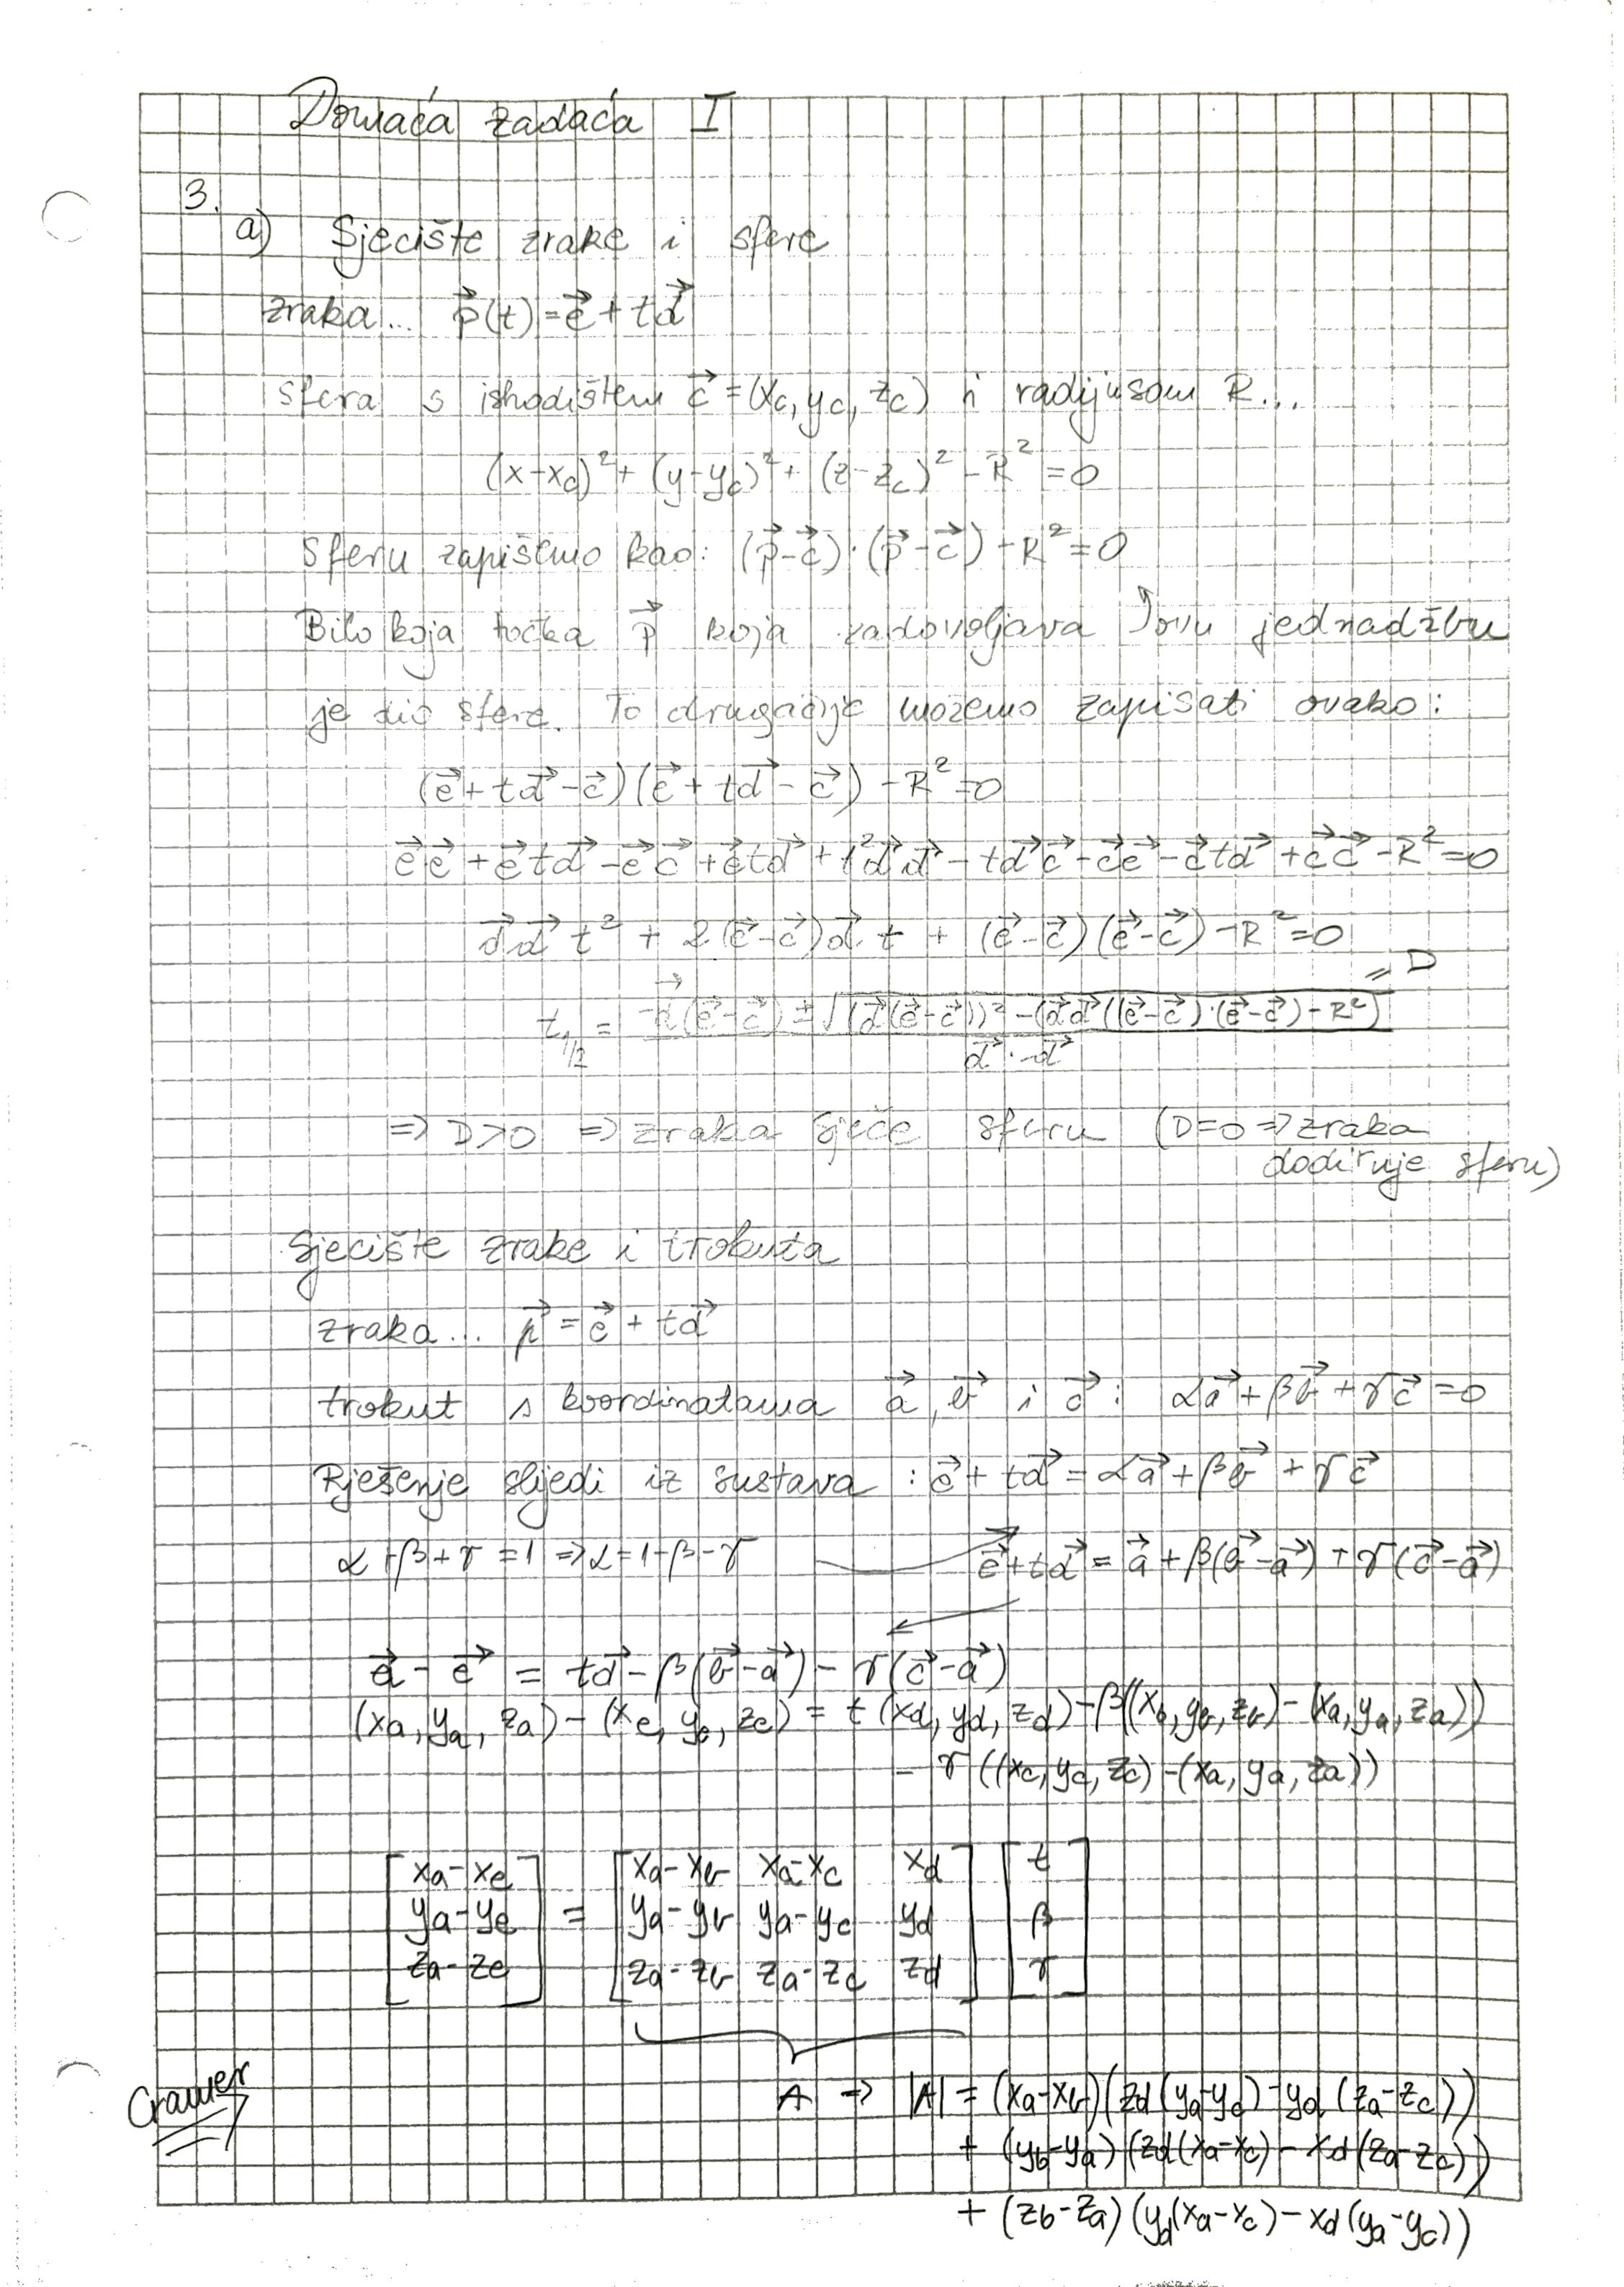 Domaća zadaća I
3.
a) Sjecište zrake i sfere
zraka... p⃗(t) = e⃗ + td⃗
sfera s ishodištem c⃗ = (xc, yc, zc) i radijusom R...
(x-xc)² + (y-yc)² + (z-zc)² - R² = 0
Sferu zapišemo kao: (p⃗-c⃗)·(p⃗-c⃗) - R² = 0
Bilo koja točka p⃗ koja zadovoljava ovu jednadžbu
je dio sfere. To drugačije možemo zapisati ovako:
(e⃗ + td⃗ - c⃗)(e⃗ + td⃗ - c⃗) - R² = 0
e⃗e⃗ + e⃗td⃗ - e⃗c⃗ + e⃗td⃗ + t²d⃗d⃗ - td⃗c⃗ - c⃗e⃗ - c⃗td⃗ + c⃗c⃗ - R² = 0
d⃗d⃗ t² + 2(e⃗-c⃗)d⃗ t + (e⃗-c⃗)(e⃗-c⃗) - R² = 0
= D
t1/2 = -d⃗(e⃗-c⃗) ± √((d⃗(e⃗-c⃗))² - (d⃗d⃗((e⃗-c⃗)·(e⃗-c⃗) - R²)
d⃗·d⃗
=> D>0 => zraka sječe sferu (D=0 => zraka
dodiruje sferu)
Sjecište zrake i trokuta
zraka... p⃗ = e⃗ + td⃗
trokut s koordinatama a⃗, b⃗ i c⃗ : αa⃗ + βb⃗ + γc⃗ = 0
Rješenje slijedi iz sustava : e⃗ + td⃗ = αa⃗ + βb⃗ + γc⃗
α + β + γ = 1 => α = 1-β-γ e⃗ + td⃗ = a⃗ + β(b⃗-a⃗) + γ(c⃗-a⃗)
a⃗ - e⃗ = td⃗ - β(b⃗-a⃗) - γ(c⃗-a⃗)
(xa, ya, za) - (xe, ye, ze) = t(xd, yd, zd) - β((xb, yb, zb) - (xa, ya, za))
- γ((xc, yc, zc) - (xa, ya, za))
[xa-xe] [xa-xb xa-xc xd] [t]
[ya-ye] = [ya-yb ya-yc yd] [β]
[za-ze] [za-zb za-zc zd] [γ]
Cramer
A => |A| = (xa-xb)(zd(ya-yc) - yd(za-zc))
+ (yb-ya)(zd(xa-xc) - xd(za-zc))
+ (zb-za)(yd(xa-xc) - xd(ya-yc))